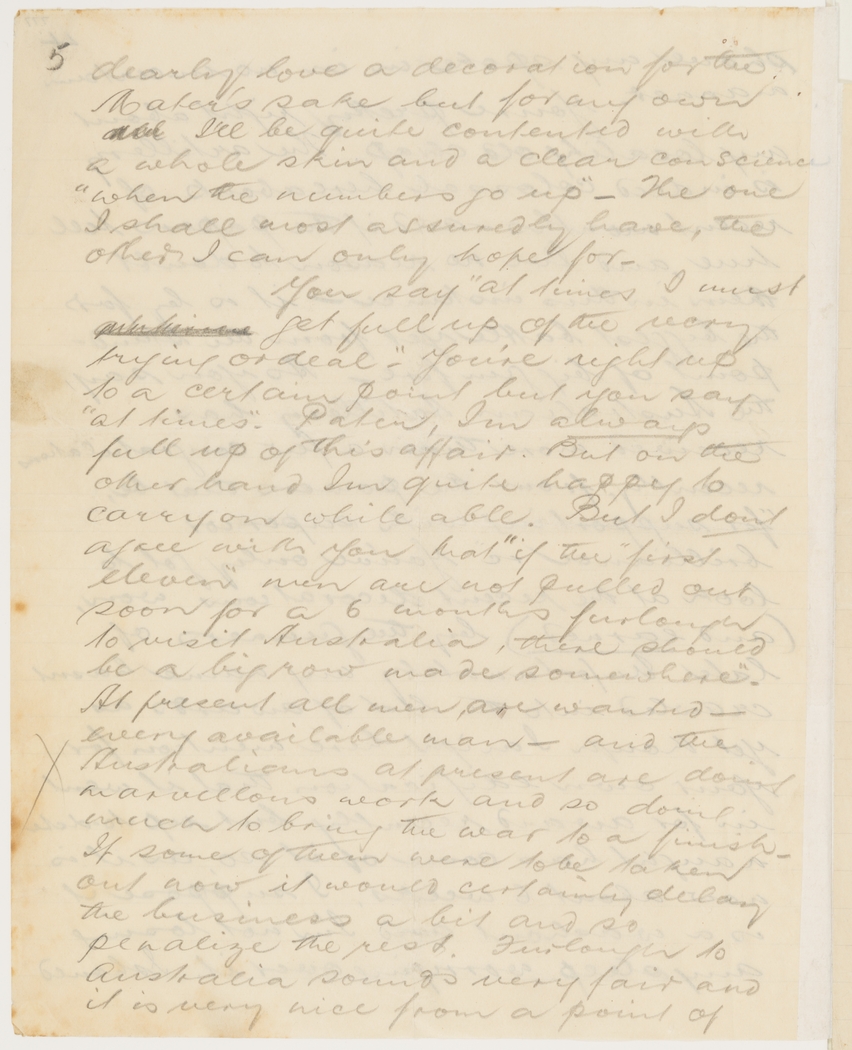 5
dearly love a decoration for the
Mater's sake but for my own
I'll be quite contented with
a whole skin and a clear conscience
"when the numbers go up" - The one
I shall most assuredly have, the
other I can only hope for -
You say "at times I must
get full up of the very
trying ordeal" - You're right up
to a certain point but you say
"at times". Pater, I'm always
full up of this affair. But on the
other hand I'm quite happy to
carry on while able. But I dont
agree with you that "if the "first
eleven" men are not pulled out
soon for a 6 months furlough
to visit Australia, there should
be a big row made somewhere" -
At present all men are wanted -
every available man - and the
Australians at present are doing
marvellous work and so doing
much to bring the war to a finish -
If some of them were to be taken
out now it would certainly delay
the business a bit and so
penalize the rest. Furlough to
Australia sounds very fair and
it is very nice from a point of